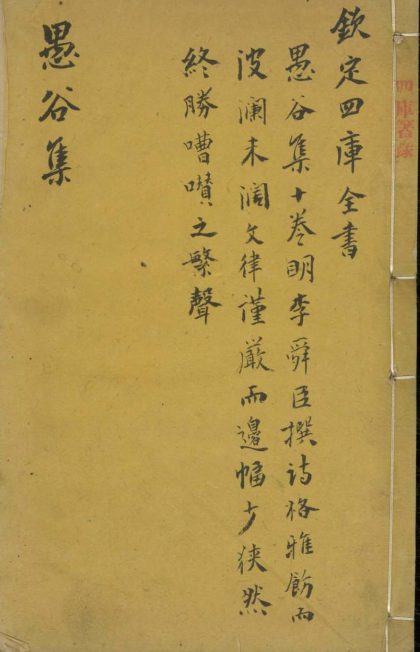 四庫著錄
欽定四庫全書
愚谷集十卷明李舜臣撰詩格雅飭而
波瀾未闊文律謹嚴而邊幅少狹然
終勝嘈囋之繁聲
愚谷集